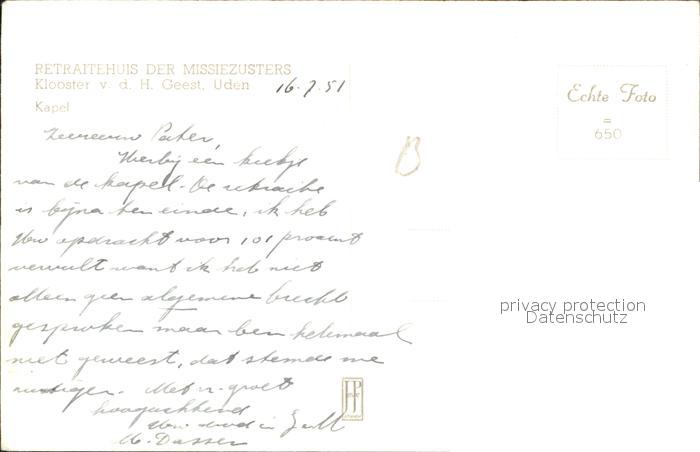 RETRAITEHUIS DER MISSIEZUSTERS
Klooster v. d. H. Geest, Uden
16.7.51
Kapel
Echte Foto
=
650
Zeereerw Pater,
Hierbij één kiekje
van de kapel. De retraite
is bijna ten einde, ik heb
Uw opdracht voor 101 procent
vervult want ik heb niet
alleen geen algemene biecht
gesproken maar ben helemaal
niet geweest, dat stemde me
rustiger. Met vr. groet
hoogachtend
Uw in
M. Dassen
privacy protection
Datenschutz
JP